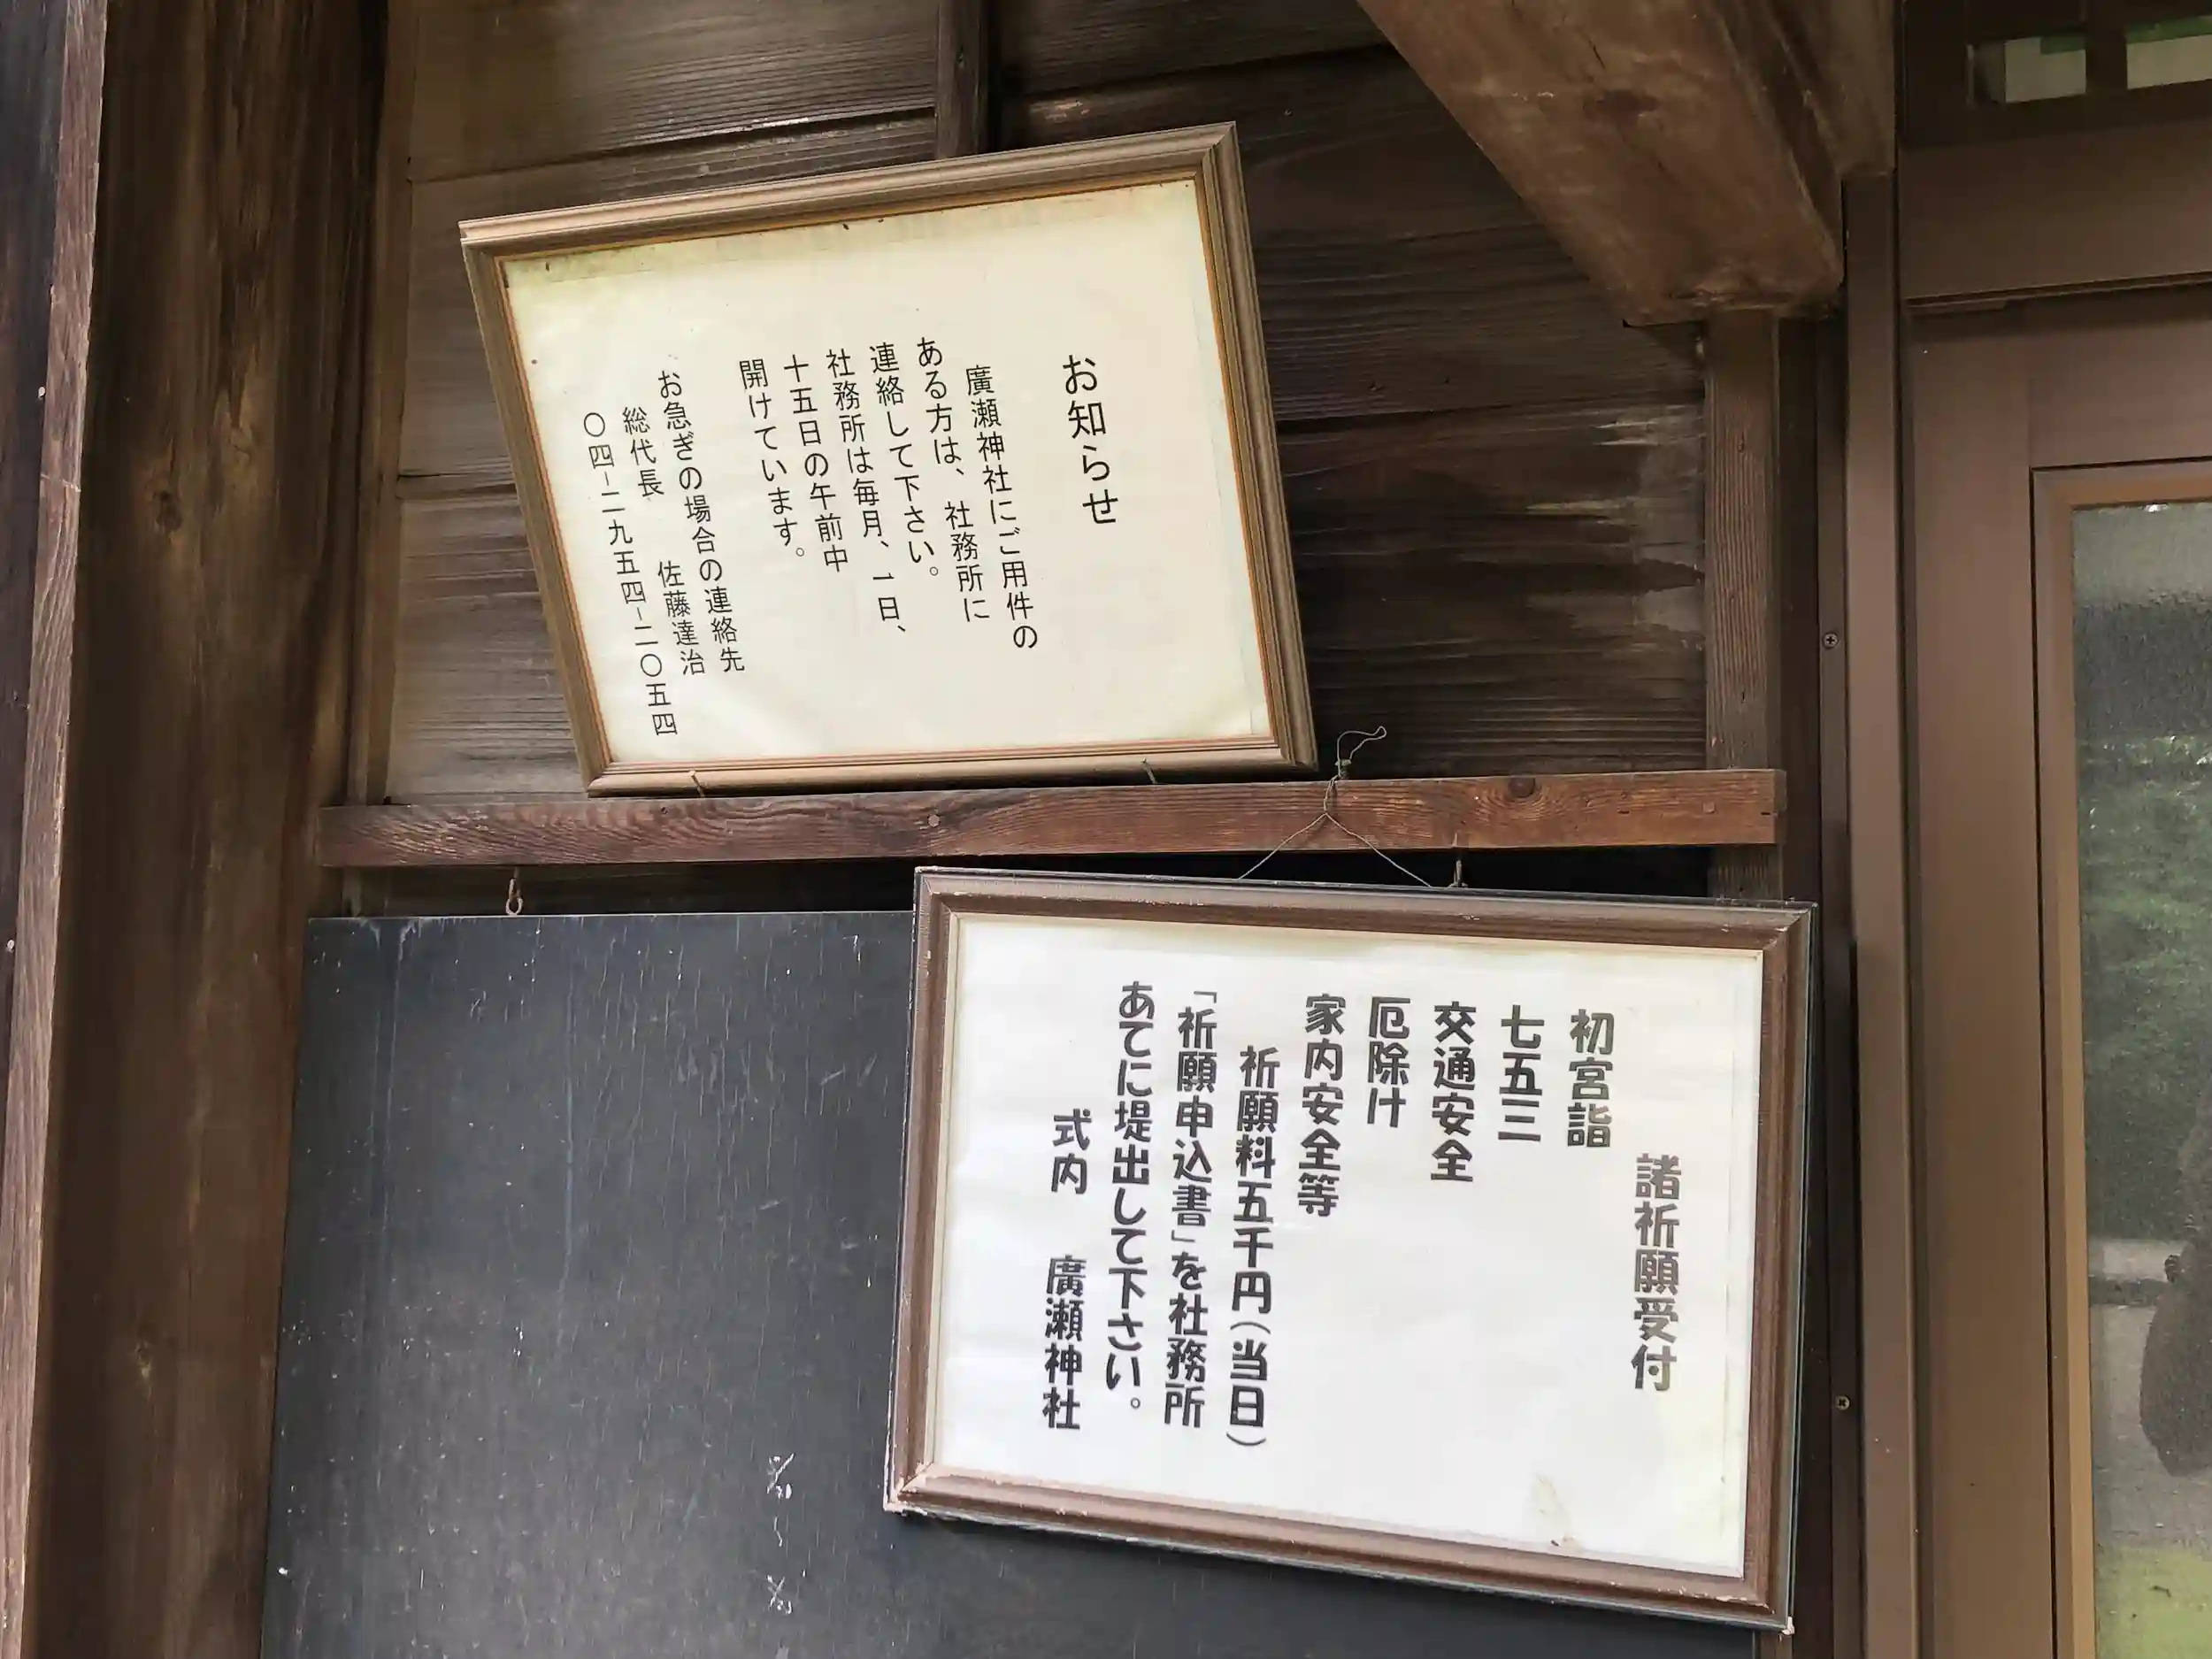 お知らせ
廣瀬神社にご用件の
ある方は、社務所に
連絡して下さい。
社務所は毎月、一日、
十五日の午前中
開けています。
お急ぎの場合の連絡先
総代長　佐藤達治
〇四−二九五四−二〇五四
諸祈願受付
初宮詣
七五三
交通安全
厄除け
家内安全等
祈願料五千円(当日)
「祈願申込書」を社務所
あてに堤出して下さい。
式内　廣瀬神社